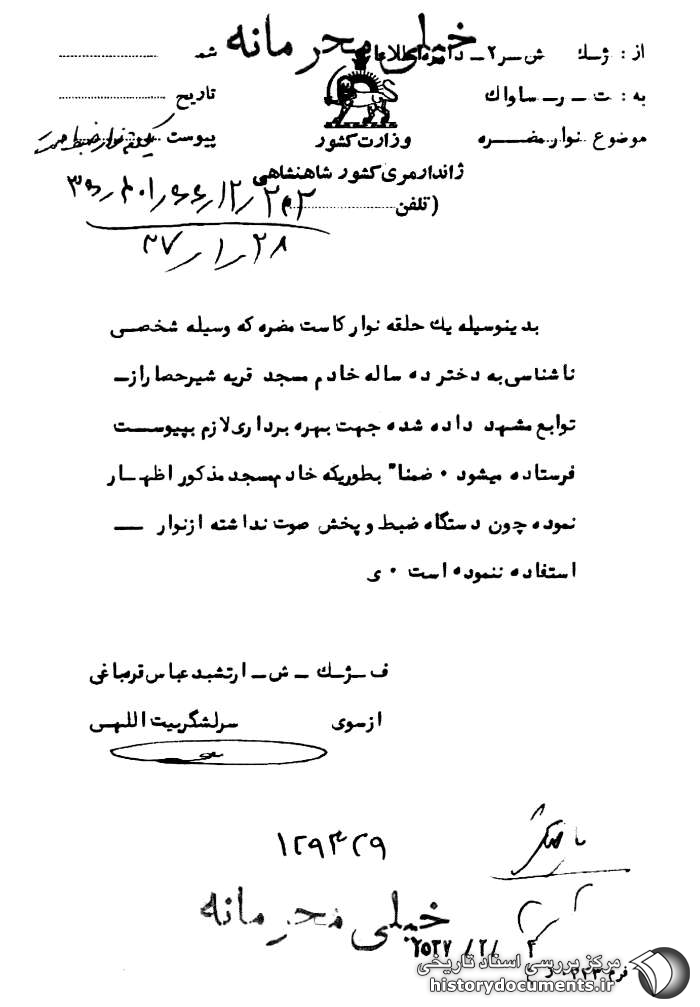 خیلی محرمانه
از : ژك ش ـ ر۲ ـ دایره اطلاعات
شم
به : ت ـ ر ـ ساواك
تاریخ
موضوع نوار مضـــره
وزارت کشور
پیوست یکحلقه نوار ضبط صوت
ژاندارمری کشور شاهنشاهی
(تلفن
۳۷/۱/۲۸
بدینوسیله یك حلقه نوار کاست مضره که وسیله شخصـی
ناشناسی به دختر ده ساله خادم مسجد قریه شیرحصار از ـ
توابع مشهد داده شده جهت بهره برداری لازم بپیوســت
فرستاده میشود ۰ ضمنا" بطوریکه خادم مسجد مذکور اظهـار
نموده چون دستگاه ضبط و پخش صوت نداشته از نوار ـــ
استفاده ننموده است ۰ ی
ف ـ ژك ـ ش ـ ارتشبد عباس قره‌باغی
از سوی سرلشگر بیت اللهـی
۱۲۹۴۲۹
خیلی محرمانه
۴ /۲/ ۲۵۳۷
فرم ۲۲۳
مرکز بررسی اسناد تاریخی
historydocuments.ir